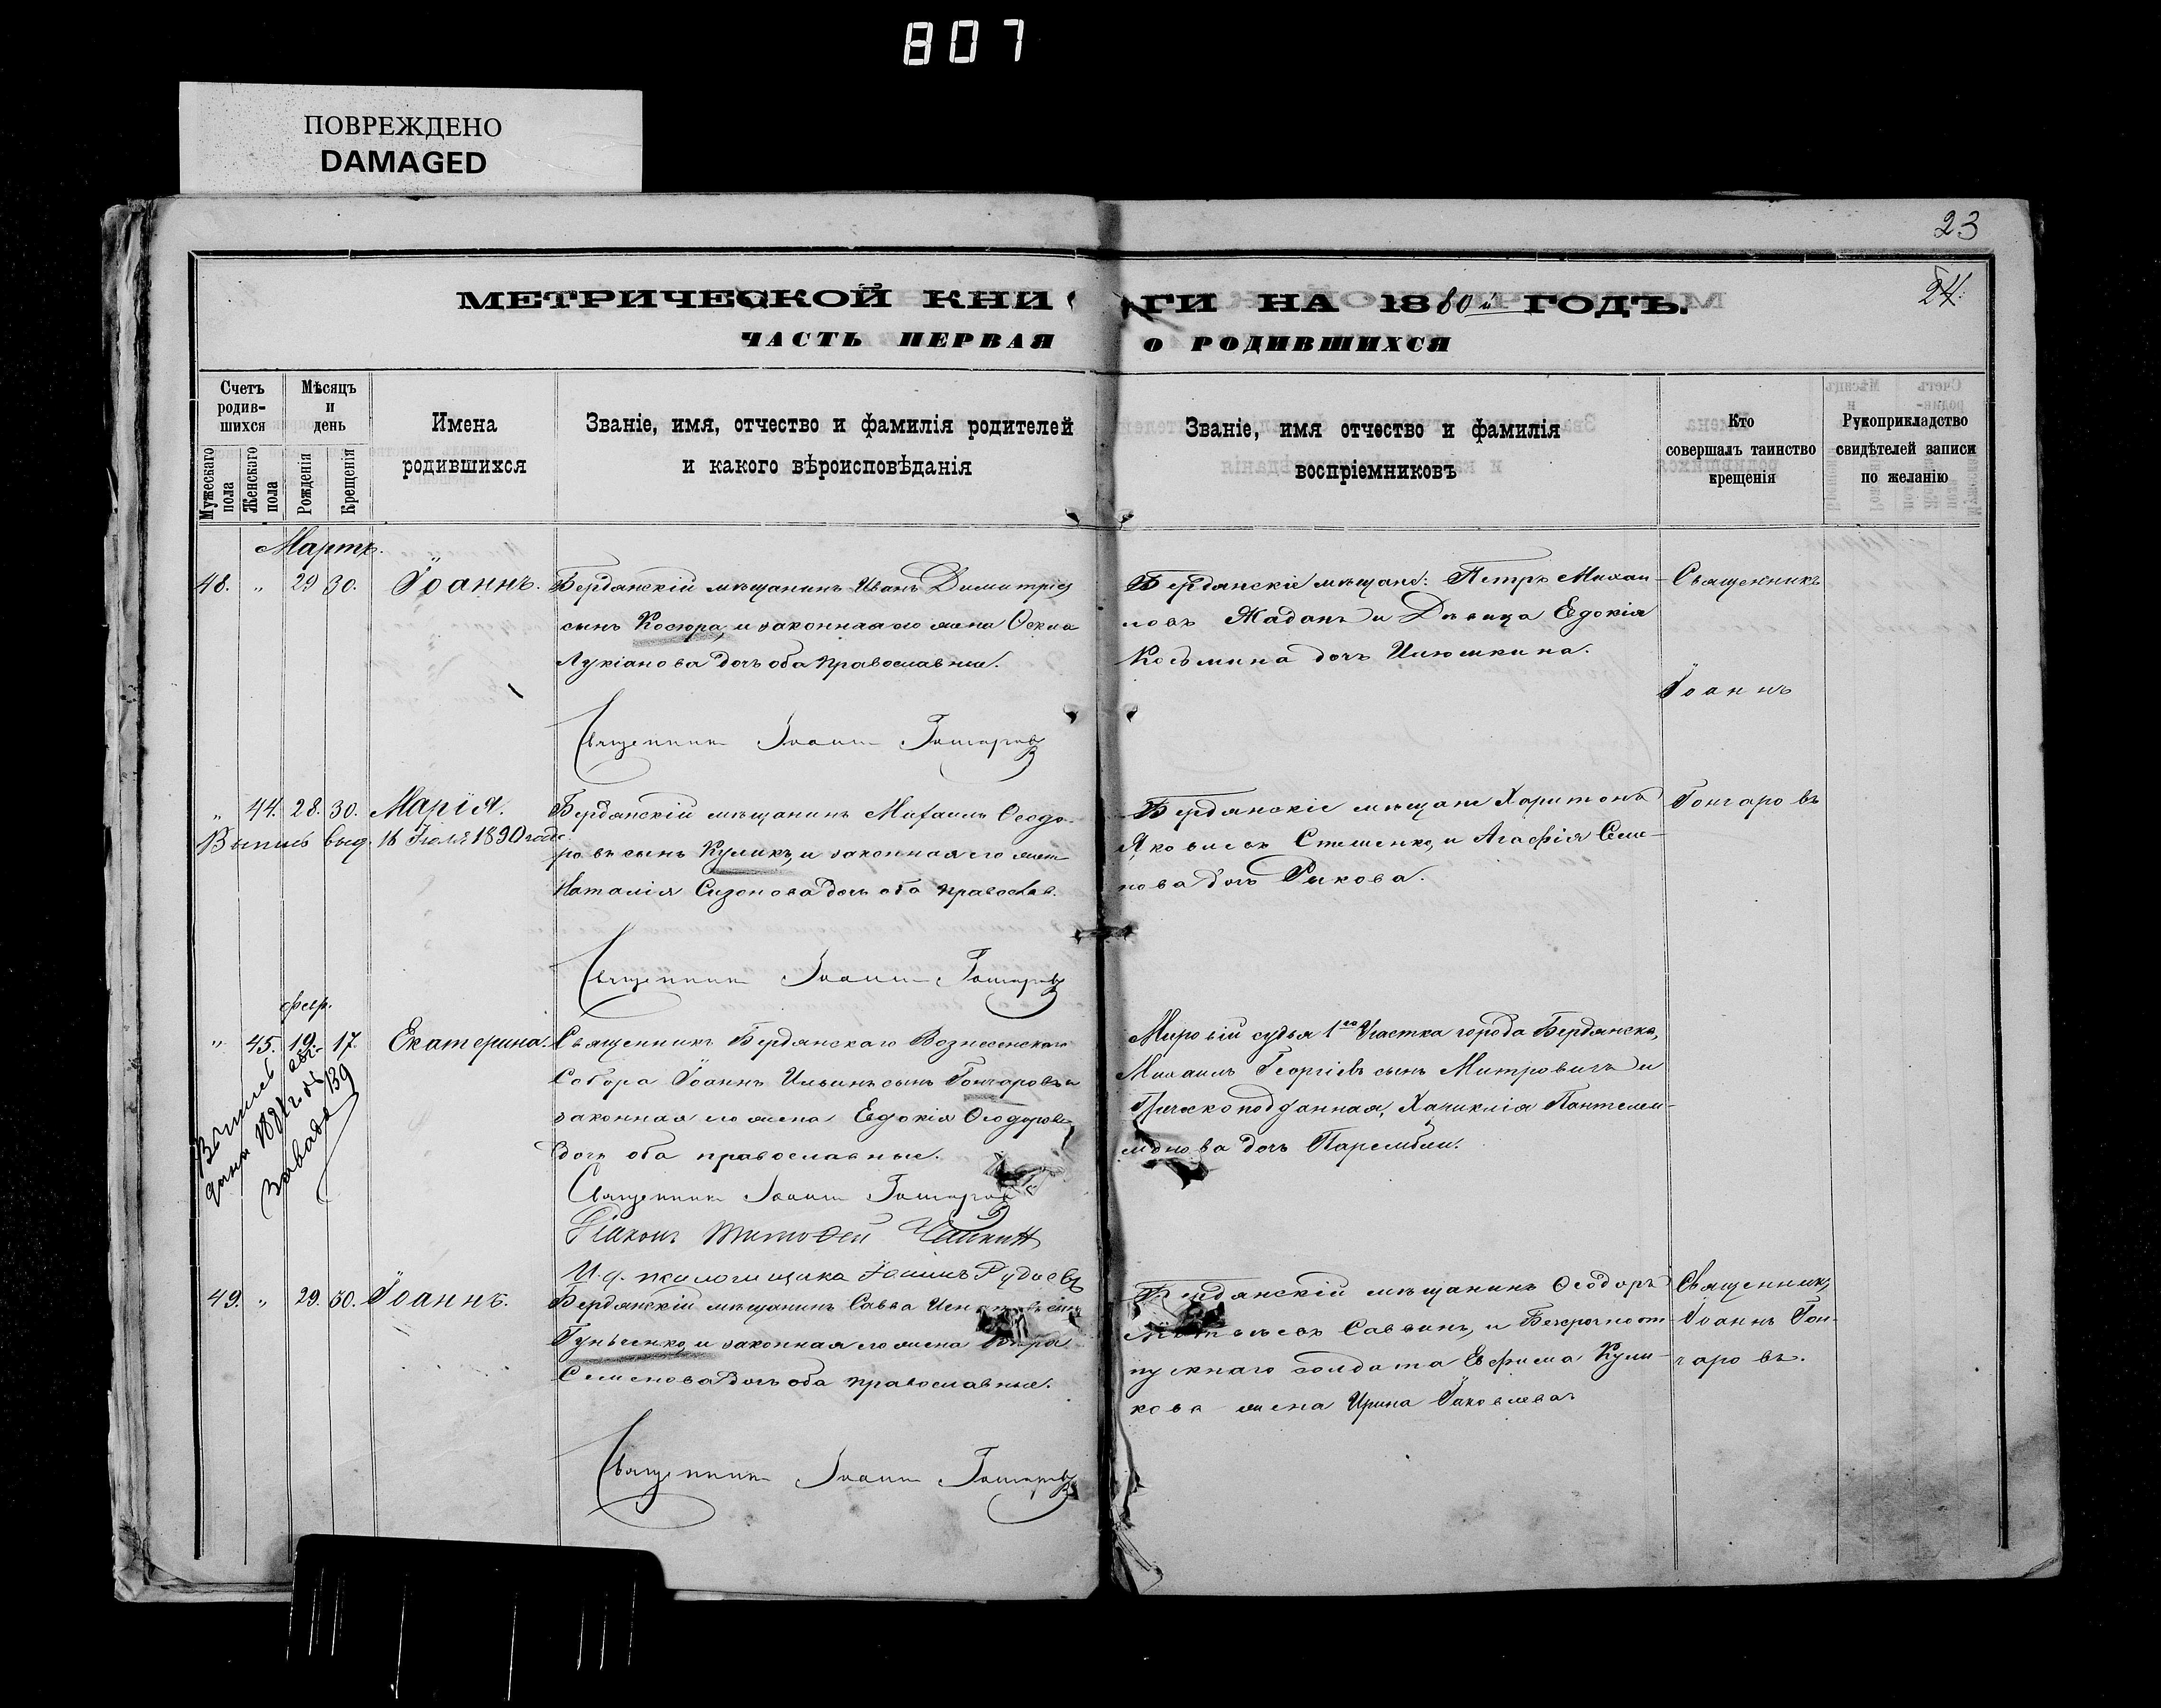 807
ПОВРЕЖДЕНО
DAMAGED
23
24.
МЕТРИЧЕСКОЙ КНИГИ НА 1880й ГОДЪ.
ЧАСТЬ ПЕРВАЯ О РОДИВШИХСЯ
Счетъ родившихся
Мужескаго пола
Женскаго пола
Мѣсяцъ и день
Рожденія
Крещенія
Имена родившихся
Званіе, имя, отчество и фамилія родителей
и какого вѣроисповѣданія
Званіе, имя отчество и фамилія
воспріемниковъ
Кто
совершалъ таинство
крещенія
Рукоприкладство
свидѣтелей записи
по желанію
Мартъ.
48. " 29 30. Іоаннъ.
Бердянскій мѣщанинъ Иванъ Димитріев
сынъ Косюра, и законная его жена
Лукіанова дочь оба православные.
Священникъ Іоаннъ Гончаровъ
Бердянскіе мѣщане: Петръ Михаи-
ловъ Жаданъ и Дѣвица Евдокія
Косьмина дочь Илюшкина.
Священникъ
Іоаннъ
Гончаровъ
" 44. 28. 30. Марія.
Выпись выд. 16 Іюля 1890 года
Бердянскій мѣщанинъ Михаилъ Ѳеодо-
ровъ сынъ Куликъ, и законная его жена
Наталія Сизонова дочь оба православ.
Священникъ Іоаннъ Гончаровъ
Бердянскіе мѣщане Харитонъ
Яковлевъ Стешенко, и Агафія Семе-
нова дочь Рыкова.
февр.
" 45. 19. 17. Екатерина.
Выпись
Священникъ Бердянскаго Вознесенскаго
Собора Іоаннъ Ильинъ сынъ Гончаровъ и
законная его жена Евдокія Ѳеодорова
дочь оба православные.
Священникъ Іоаннъ Гончаровъ
Діаконъ Тимофей
И. д. псаломщика Іоаннъ
Мировой судья 1го Участка города Бердянска,
Михаилъ Георгіевъ сынъ Митровичъ и
Греческоподданная, Хариклія Пантелей-
монова дочь
49. " 29. 30. Іоаннъ.
Бердянскій мѣщанинъ Савва
Гунченко, и законная его жена
Семенова дочь оба православные.
Священникъ Іоаннъ Гончаровъ
Бердянскій мѣщанинъ Ѳеодоръ
Саввинъ, и Безсрочноот-
пускнаго солдата Евфима Кули-
кова жена Ирина Іаковлева.
Священникъ
Іоаннъ Гон-
чаровъ.